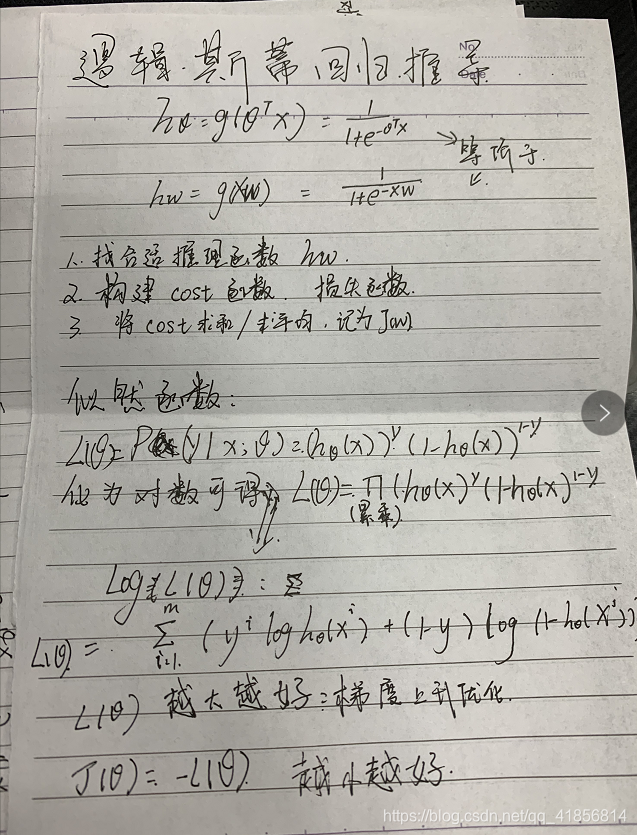 逻辑斯蒂回归推导
hθ = g(θᵀx) = 1/(1+e^(-θᵀx))
等价于
hw = g(Xw) = 1/(1+e^(-Xw))
1. 找合适推理函数 hw.
2. 构建 cost 函数. 损失函数.
3. 将 cost 求和/求平均, 记为 J(w)
似然函数:
L(θ) = P(y|x;θ) = (hθ(x))^y (1-hθ(x))^(1-y)
化为对数可得 L(θ) = Π(hθ(x)^y (1-hθ(x)^(1-y)
(累乘)
Log{L(θ)}: Σ
L(θ) = Σ_(i=1)^m (y^i log hθ(x^i) + (1-y) log (1-hθ(x^i))
L(θ) 越大越好: 梯度上升优化.
J(θ) = -L(θ) 越小越好.
https://blog.csdn.net/qq_41856814